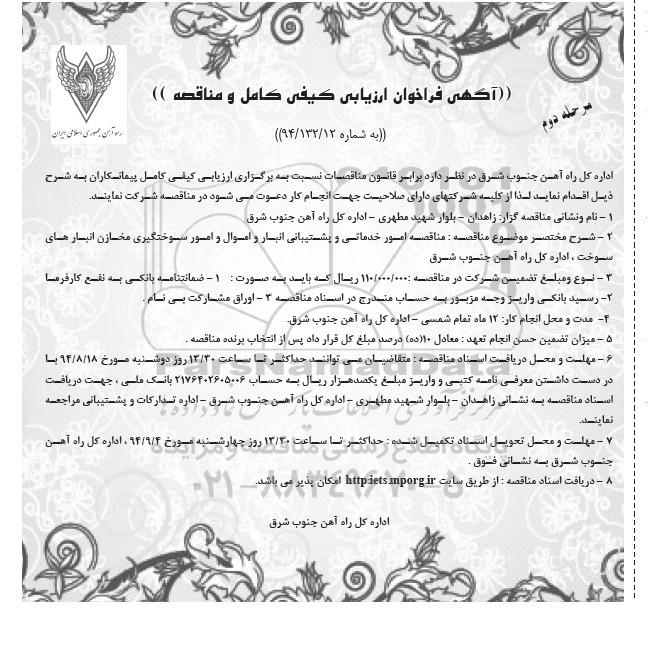 ((آگهی فراخوان ارزیابی کیفی کامل و مناقصه ))
مرحله دوم
راه آهن جمهوری اسلامی ایران
((به شماره ۹۴/۱۳۲/۱۲))
اداره کل راه آهن جنوب شرق در نظر دارد برابر قانون مناقصات نسبت به برگزاری ارزیابی کیفی کامل پیمانکاران به شرح
ذیل اقدام نماید لذا از کلیه شرکتهای دارای صلاحیت جهت انجام کار دعوت می شود در مناقصه شرکت نمایند.
۱ – نام ونشانی مناقصه گزار: زاهدان – بلوار شهید مطهری – اداره کل راه آهن جنوب شرق
۲ – شرح مختصر موضوع مناقصه : مناقصه امور خدماتی و پشتیبانی انبار و اموال و امور سوختگیری مخازن انبار های
سوخت ، اداره کل راه آهن جنوب شرق
۳ – نوع ومبلغ تضمین شرکت در مناقصه :۱۱۰/۰۰۰/۰۰۰ ریال که باید به صورت : ۱ – ضمانتنامه بانکی به نفع کارفرما
۲– رسید بانکی واریز وجه مزبور به حساب مندرج در اسناد مناقصه ۳ – اوراق مشارکت بی نام .
۴– مدت و محل انجام کار: ۱۲ ماه تمام شمسی – اداره کل راه آهن جنوب شرق.
۵ – میزان تضمین حسن انجام تعهد : معادل ۱۰(ده) درصد مبلغ کل قرار داد پس از انتخاب برنده مناقصه .
۶ – مهلت و محل دریافت اسناد مناقصه : متقاضیان می توانند حداکثر تا ساعت ۱۳/۳۰ روز دوشنبه مورخ ۹۴/۸/۱۸ با
در دست داشتن معرفی نامه کتبی و واریز مبلغ یکصدهزار ریال به حساب ۲۱۷۶۴۰۲۶۰۵۰۰۶ بانک ملی ، جهت دریافت
اسناد مناقصه به نشانی زاهدان – بلوار شهید مطهری – اداره کل راه آهن جنوب شرق – اداره تدارکات و پشتیبانی مراجعه
نمایند.
۷ – مهلت و محل تحویل اسناد تکمیل شده : حداکثر تا ساعت ۱۳/۳۰ روز چهارشنبه مورخ ۹۴/۹/۴ ، اداره کل راه آهن
جنوب شرق به نشانی فوق .
۸ – دریافت اسناد مناقصه : از طریق سایت http:iets.mporg.ir امکان پذیر می باشد.
اداره کل راه آهن جنوب شرق
ParsNamadData
۰۲۱–۸۸۳۴۹۶۷۰–۵